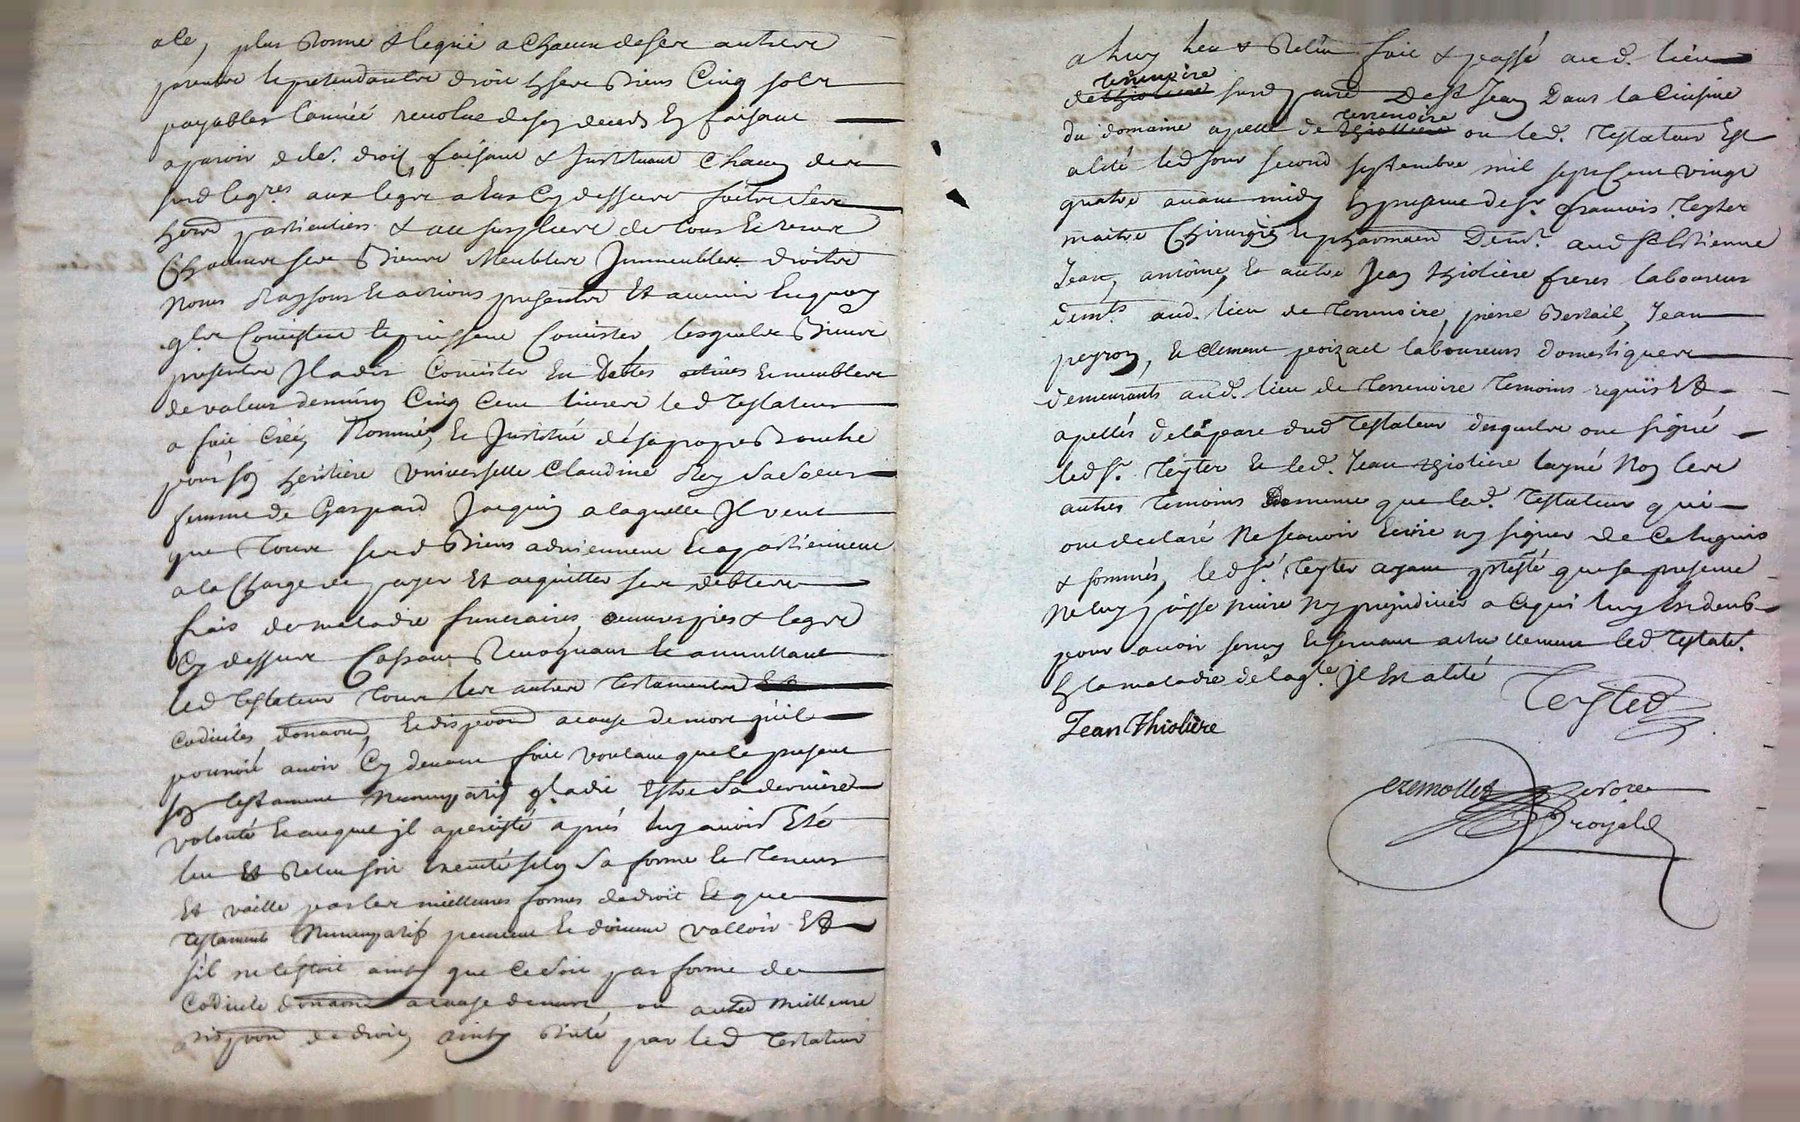 ale, plus donne & legue a chacun de ses autres
parents & pretendants droit en ses biens cinq sols
payables l'année revolue de son deceds en faisant
aparoir de le^r. droit faisant & instituant chacun de ses
susd leg^res. aux legs a eux cy dessus faits ses
hers particuliers & au surplus de tous et un
chacuns ses biens meubles immeubles droits
noms raysons et actions presents et avenir en quoy
qls consistent et puissent consister, lesquels biens
presents il a dit consister en debtes actives et meubles
de valeur denviron cinq cent livres led testateur
a fait créé, nommé, et institué de sa propre bouche
pour son heritiere universelle Claudine Rey sa soeur
femme de Gaspard Jacquin a laquelle il veut
que tous sesd biens adviennent et apartiennent
a la charge de payer et acquitter ses debtes
frais de maladie funeraires, oeuvres pies & legs
cy dessus cassant revoquant et annullant
led testateur tous les autres testaments et
codiciles donaons, et dispoons a cause de mort qu'il
pourroit avoir cy devant fait voulant que le present
son testament nuncupatif ql a dit estre sa derniere
volonté et auquel il a persisté après luy avoir été
lu et relu soit executé selon sa forme et teneur
et vaille par les meilleures formes de droit et que
testaments nuncupatifs peuvent et doivent valloir et
s'il ne l'étoit ainsy que ce soit par forme de
codicile donaon a cause de mort, ou autre meilleure
dispoon de droit, ainsy dicté par led testateur
a luy leu & relu fait & passé aud. lieu
terrenoire
de thioliere susd parr de St Jean dans la cuisine
terrenoire
du domaine apellé de thiolliere ou led. testateur est
alité led jour second septembre mil sept cent vingt
quatre avant midy en presence de Sr. francois Teyter
maitre chirurgien et pharmacien demt. aud St Etienne
Jean, antoine, et autre Jean thioliere freres laboureurs
demts. aud. lieu de terrenoire, pierre Bertail, Jean
peyron, et clement poizat laboureurs domestiques
demeurants aud. lieu de terrenoire temoins requis et
apellés de la part dud testateur desquels ont signé
led Sr. Teyter et led. Jean thioliere layné non les
autres temoins de meme que led. testateur qui
ont declaré ne scavoir ecrire ny signer de ce enquis
& sommés, led Sr. Teyter ayant protesté que sa presence
ne luy puisse nuire ny prejudicier a ce qui luy est deub
pour avoir servy et servant actuellement led. testatr.
en la maladie de laqle. il est alité
Teyter
Jean thiolière
cremollet
royal